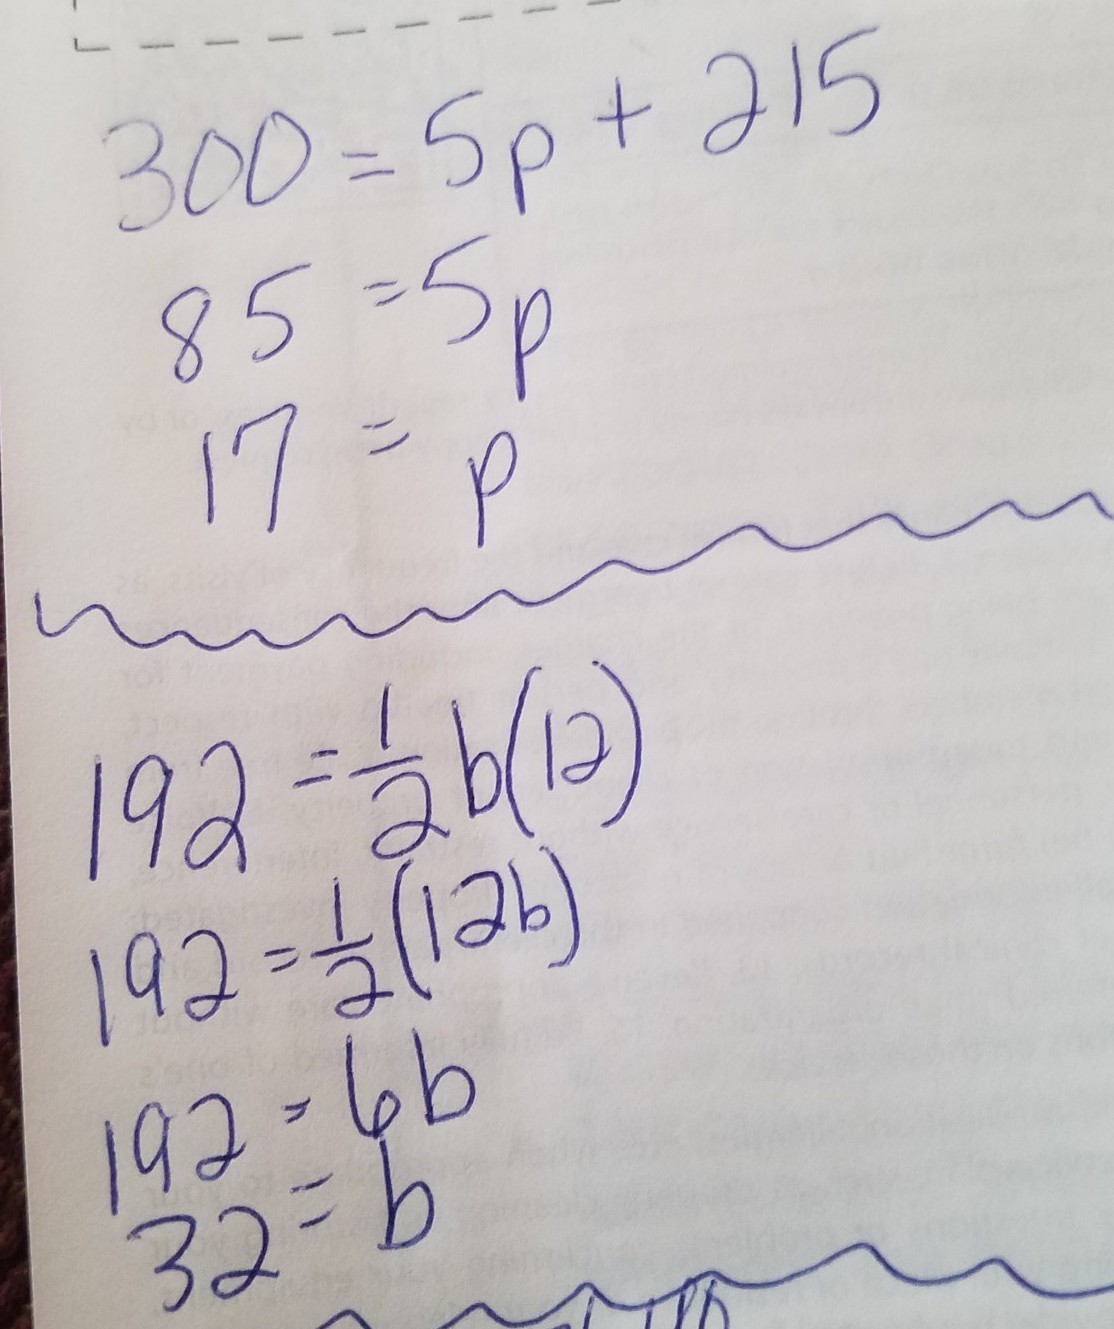 300 = 5p + 215
85 = 5p
17 = p
192 = 1/2 b(12)
192 = 1/2 (12b)
192 = 6b
32 = b